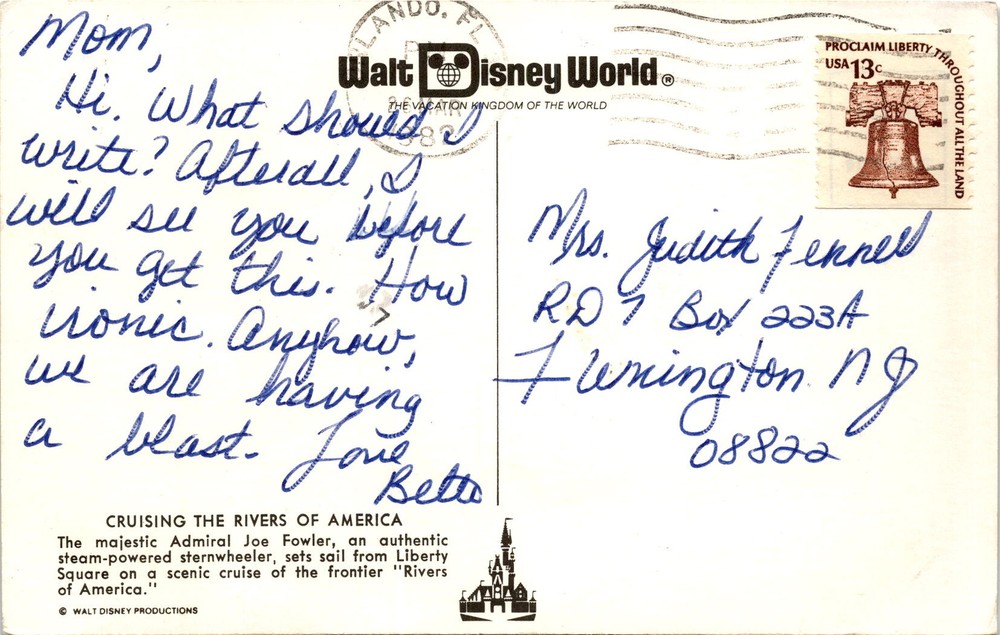 Mom,
Hi. What should I
write? Afterall, I
will see you before
you get this. How
ironic. Anyhow,
we are having
a blast. Love
CRUISING THE RIVERS OF AMERICA
The majestic Admiral Joe Fowler, an authentic
steam-powered sternwheeler, sets sail from Liberty
Square on a scenic cruise of the frontier "Rivers
of America."
© WALT DISNEY PRODUCTIONS
Walt Disney World®
THE VACATION KINGDOM OF THE WORLD
PROCLAIM LIBERTY THROUGHOUT ALL THE LAND
USA 13c
Mrs. Judith Fennell
RD 7 Box 223A
Flemington NJ
08822